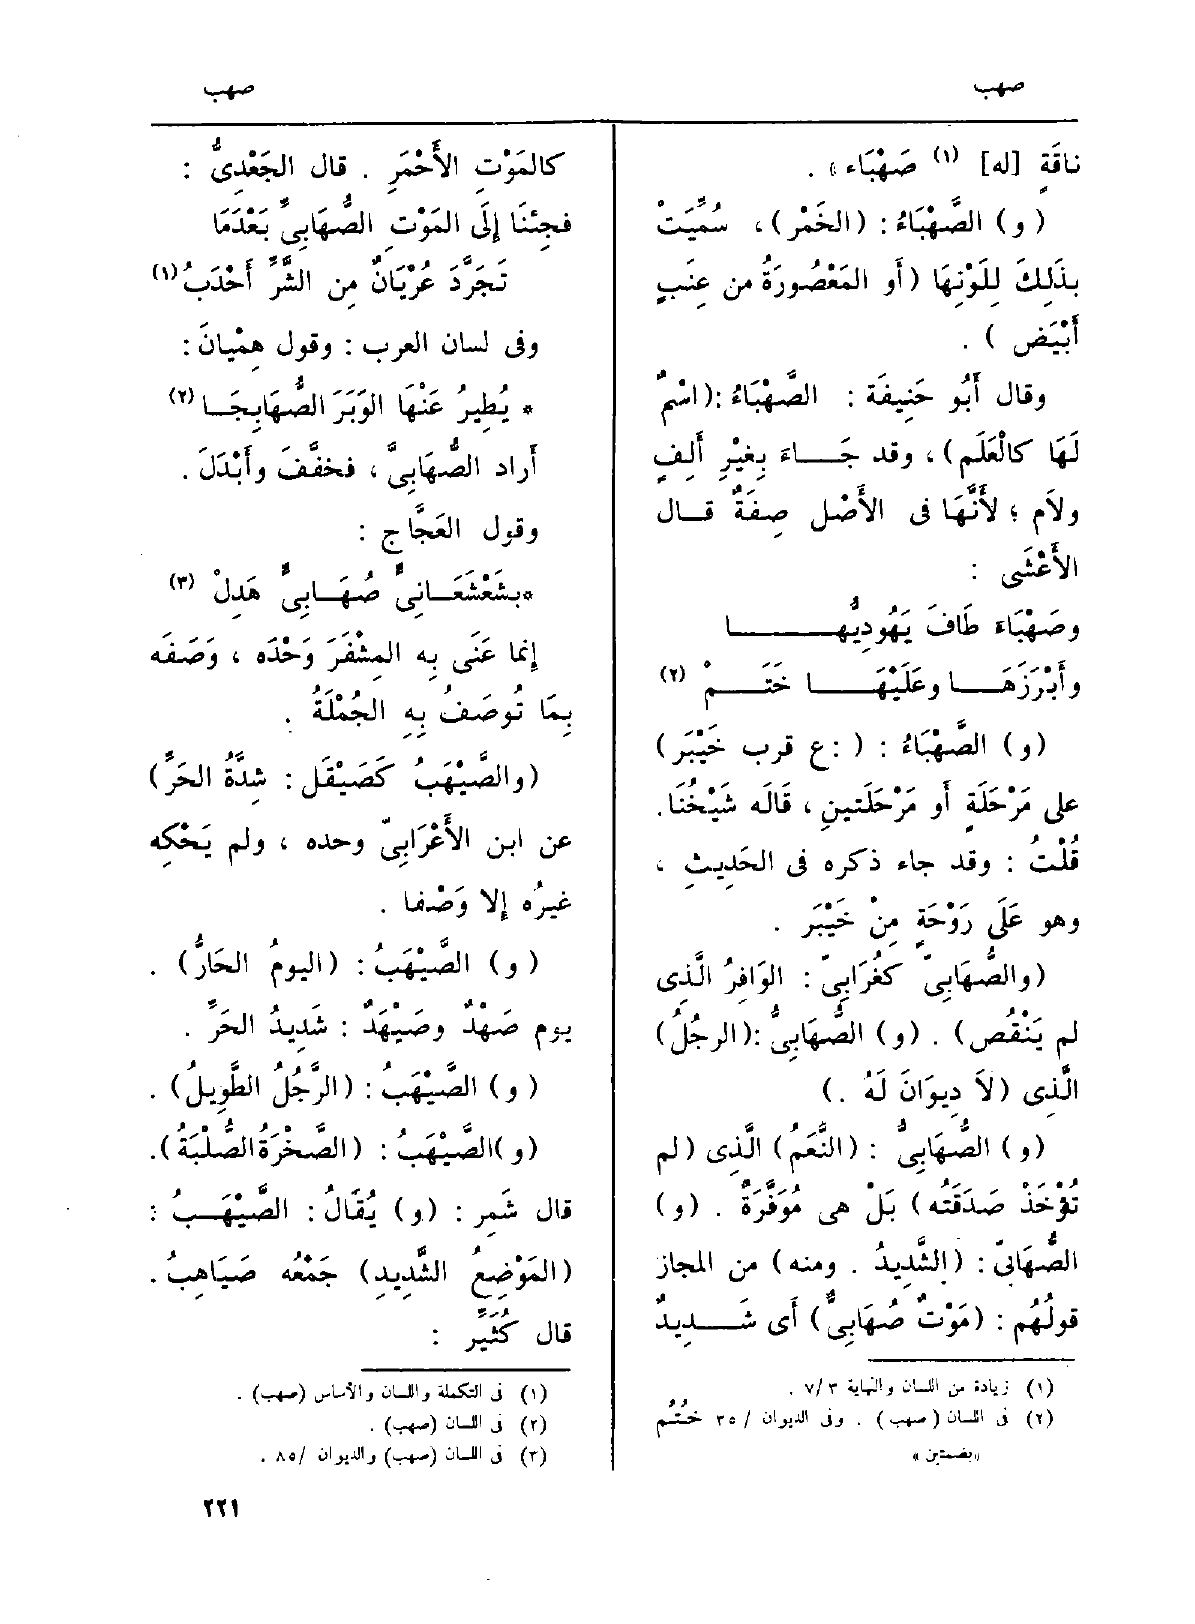 صهب
صهب
ناقَةٍ [له] (١) صَهْبَاء» .
( و ) الصَّهْبَاءُ : (الخَمْر) ، سُمِّيَتْ
بذَلِكَ لِلَوْنِهَا (أو المَعْصُورَةُ من عِنَبٍ
أَبْيَض ) .
وقال أَبُو حَنِيفَة : الصَّهْبَاءُ :(اسْمٌ
لَهَا كالْعَلَم) ، وقد جَـــاءَ بِغَيْرِ أَلِفٍ
ولاَم ؛ لأَنَّهَا فى الأَصْل صِفَةٌ قــال
الأَعْشَى :
وصَهْبَاءَ طَافَ يَهُودِيُّهـــــــا
وأَبْرَزَهَــــا وعَلَيْهَــــا خَتَــــمْ (٢)
(و) الصَّهْبَاءُ : ( :ع قرب خَيْبَر )
على مَرْحَلَةٍ أو مَرْحَلَتينِ ، قَالَه شَيْخُنَا.
قُلْتُ : وقد جاء ذكره فى الحَدِيثِ ،
وهو عَلَى رَوْحَةٍ مِنْ خَيْبَر .
(والصُّهَابِىّ كَغُرَابِىّ : الوَافِرُ الَّذِى
لم يَنْقُص) . (و) الصُّهَابِىُّ :(الرجُلُ)
الَّذِى (لاَ دِيوَانَ لَهُ .)
(و) الصُّهَابِىُّ : (النَّعَمُ) الَّذِى (لم
تُؤْخَذْ صَدَقَتُه) بَلْ هى مُوَفَّرَةٌ . (و)
الصُّهَابِىّ : (الشَّدِيدُ . ومنه) من المجاز
قولُهُم : (مَوْتٌ صُهَابِىٌّ) أى شَــــدِيدٌ
(١) زيادة من اللسان والنهاية ٧/٣ .
(٢) فى اللسان (صهب) . وفى الديوان /٣٥ خُتُم
«بضمتين»
كالمَوْتِ الأَحْمَرِ . قال الجَعْدِىُّ :
فجِئنَا إلَى المَوْتِ الصُّهَابِىِّ بَعْدَمَا
تَجَرَّدَ عُرْيَانٌ مِن الشَّرِّ أَحْدَبُ (١)
وفى لسان العرب : وقول هِمْيانَ :
* يُطِيرُ عَنْهَا الوَبَرَ الصُّهَابِجَــا (٢)
أراد الصُّهَابِىَّ ، فخفَّفَ وأَبْدَلَ .
وقول العَجَّاج :
*بشَعْشَعَــانِىٍّ صُهَــابِىٍّ هَدِلْ (٣)
إنما عَنَى به المِشْفَرَ وَحْدَه ، وَصَفَه
بِمَا تُوصَفُ بِهِ الجُمْلَةُ .
(والصَّيْهَبُ كَصَيْقَل : شِدَّةُ الحَرِّ)
عن ابن الأَعْرَابِىّ وحده ، ولم يَحْكِه
غيرُه إلا وَصْفا .
( و ) الصَّيْهَبُ : (اليومُ الحَارُّ) .
يوم صَهْدٌ وصَيْهَدٌ : شَدِيدُ الحَرِّ .
( و ) الصَّيْهَبُ : (الرَّجُلُ الطَّوِيلُ) .
(و)الصَّيْهَبُ : (الصَّخْرَةُ الصُّلْبَةُ).
قال شَمِر : (و) يُقَالُ : الصَّيْهَــبُ :
(المَوْضِعُ الشَّدِيدِ) جَمْعُه صَيَاهِبُ .
قال كُثَيِّر :
(١) فى التكملة واللسان والأساس (صهب) .
(٢) فى اللسان (صهب) .
(٣) فى اللسان (صهب) والديوان /٨٥ .
٢٢١